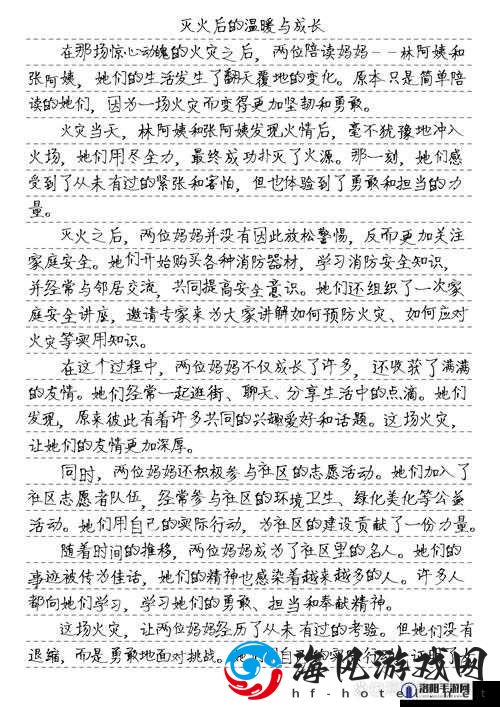 灭火后的温暖与成长
在那场惊心动魄的火灾之后，两位陪读妈妈--林阿姨和
张阿姨，她们的生活发生了翻天覆地的变化。原本只是简单陪
读的她们，因为一场火灾而变得更加坚韧和勇敢。
火灾当天，林阿姨和张阿姨发现火情后，毫不犹豫地冲入
火场，她们用尽全力，最终成功扑灭了火源。那一刻，她们感
受到了从未有过的紧张和害怕，但也体验到了勇敢和担当的力
量。
灭火之后，两位妈妈并没有因此放松警惕，反而更加关注
家庭安全。她们开始购买各种消防器材，学习消防安全知识，
并经常与邻居交流，共同提高安全意识。她们还组织了一次家
庭安全讲座，邀请专家来为大家讲解如何预防火灾、如何应对
火灾等实用知识。
在这个过程中，两位妈妈不仅成长了许多，还收获了满满
的友情。她们经常一起逛街、聊天、分享生活中的点滴。她们
发现，原来彼此有着许多共同的兴趣爱好和话题。这场火灾，
让她们的友情更加深厚。
同时，两位妈妈还积极参与社区的志愿活动。她们加入了
社区志愿者队伍，经常参与社区的环境卫生、绿化美化等公益
活动。她们用自己的实际行动，为社区的建设贡献了一份力量。
随着时间的推移，两位妈妈成为了社区里的名人。她们的
事迹被传为佳话，她们的精神也感染着越来越多的人。许多人
都向她们学习，学习她们的勇敢、担当和奉献精神。
这场火灾，让两位妈妈经历了从未有过的考验。但她们没有
退缩，而是勇敢地面对挑战。
海风游戏网
hf-hotel.net
洛阳手游网